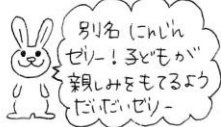 別名 にんじん
ゼリー！子どもが
親しみをもてるよう
だいだいゼリー